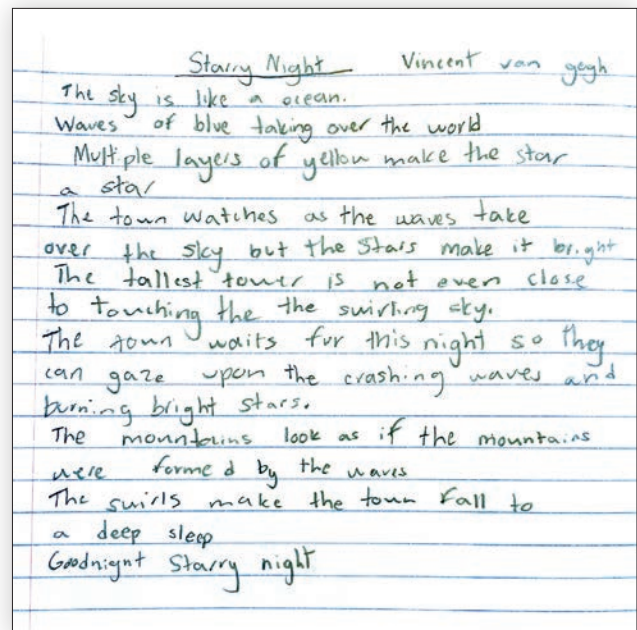 Starry Night Vincent van gogh
The sky is like a ocean.
Waves of blue taking over the world
Multiple layers of yellow make the star
a star
The town watches as the waves take
over the sky but the Stars make it bright
The tallest tower is not even close
to touching the the swirling sky.
The town waits for this night so they
can gaze upon the crashing waves and
burning bright stars.
The mountains look as if the mountains
were formed by the waves
The swirls make the town fall to
a deep sleep
Goodnight Starry night